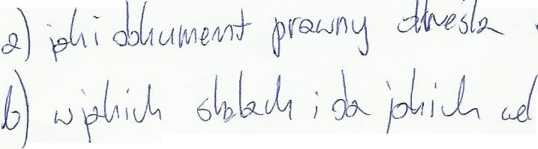 a) jaki dokument prawny określa
b) w jakich skalach i do jakich cel